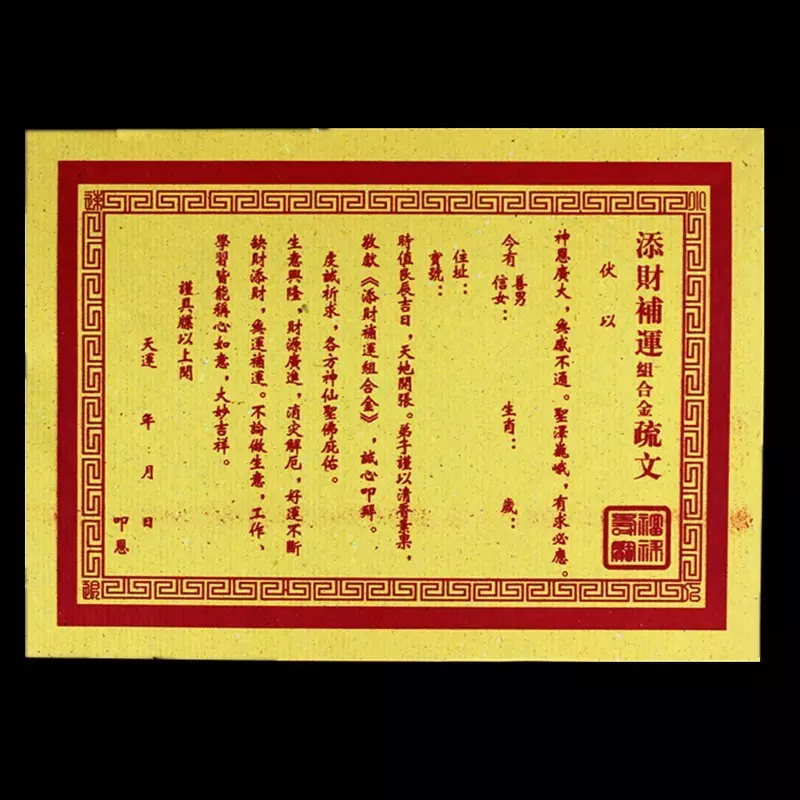 添財補運組合金疏文
福祿
伏以
神恩廣大，無感不通。聖澤巍峨，有求必應。
今有 善男信女： 生肖： 歲：
住址：
寶號：
時值良辰吉日，天地開張。弟子謹以清香菓果，
敬獻《添財補運組合金》，誠心叩拜。
虔誠祈求，各方神仙聖佛庇佑。
生意興隆，財源廣進，消災解厄，好運不斷
缺財添財，無運補運。不論做生意，工作、
學習皆能稱心如意，大妙吉祥。
謹具牒以上聞
天運 年 月 日
叩恩